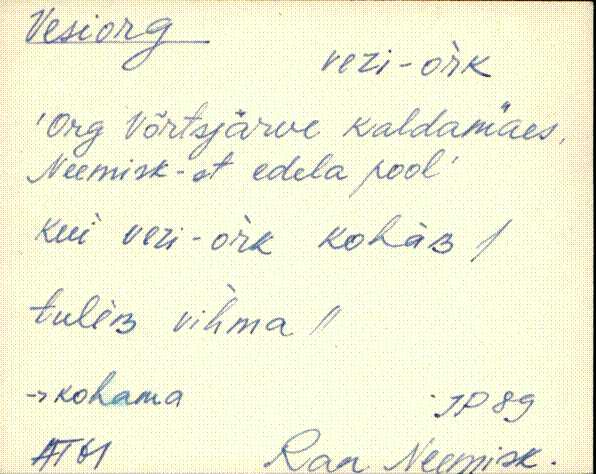 Vesiorg
vezi-òrk
'Org Võrtsjärve kaldamäes,
Neemisk-st edela pool'
kui vezi-òrk kohàB /
tulèB vìhma //
→ kohama
JP 89
Ran Neemisk.